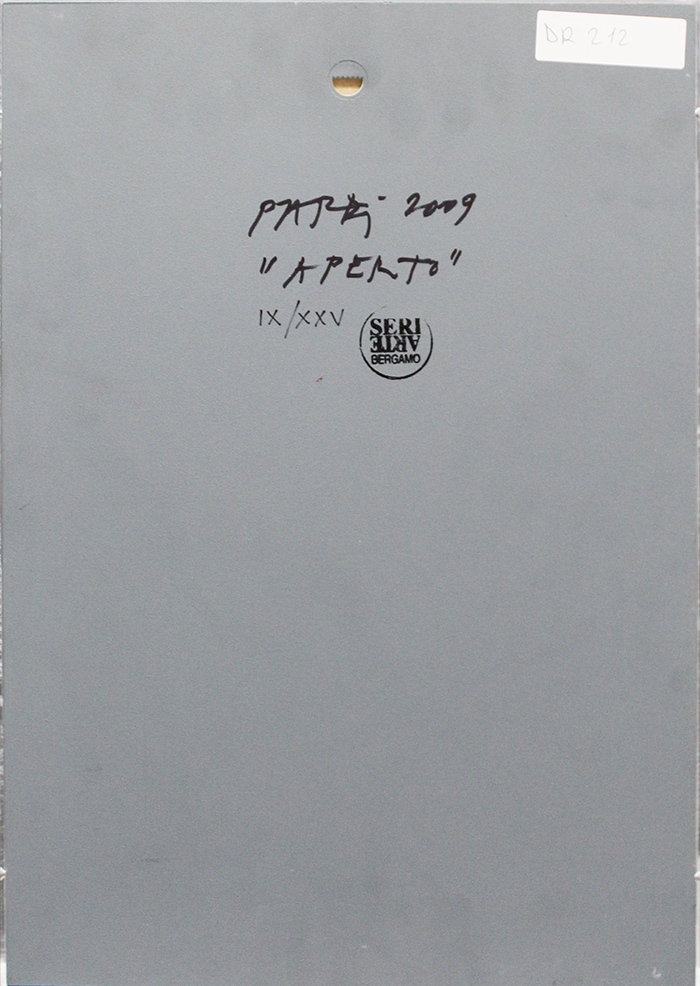 DR 212
PARZJ 2009
"APERTO"
IX/XXV
SERI
ARTE
BERGAMO